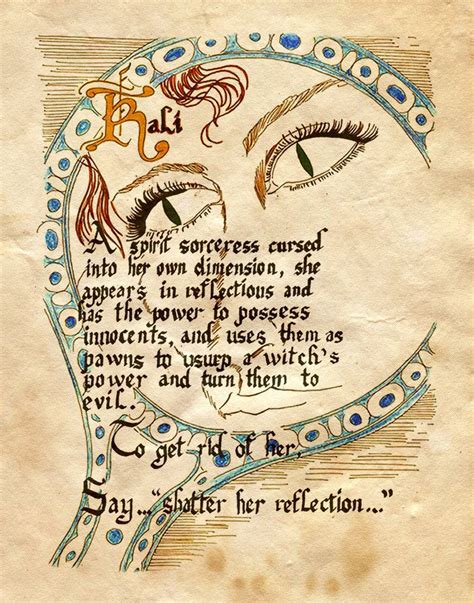 Kali
A spirit sorceress cursed
into her own dimension, she
appears in reflections and
has the power to possess
innocents, and uses them as
pawns to usurp a witch's
power and turn them to
evil.
To get rid of her,
Say..."shatter her reflection..."